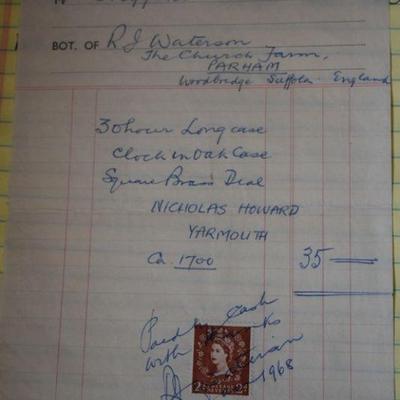 BOT. OF R J Waterson
The Church Farm,
PARHAM
Woodbridge Suffolk. England
30 hour Long case
Clock in Oak Case
Square Brass Dial
NICHOLAS HOWARD
YARMOUTH
Ca. 1700
35 —
Paid by Cash
with thanks
1968